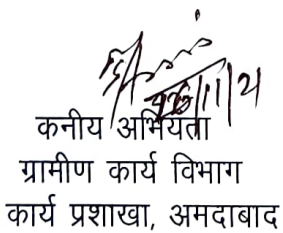 कनीय अभियंता
ग्रामीण कार्य विभाग
कार्य प्रशाखा, अमदाबाद